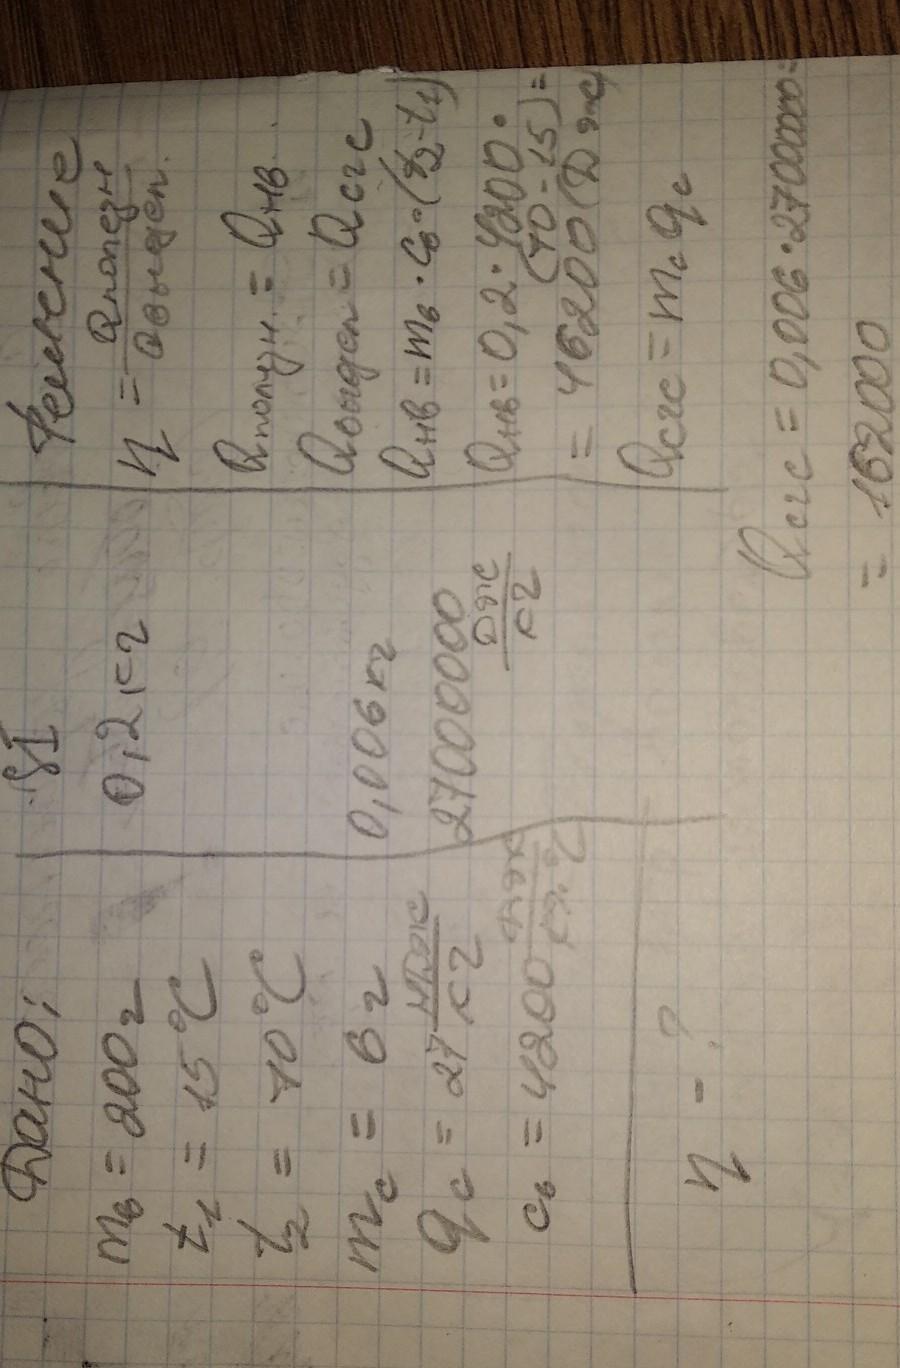 Дано:
mв = 200г
t1 = 15°С
t2 = 70°С
mс = 6г
qс = 27 МДж/кг
cв = 4200 Дж/кг·°С
η - ?
SI
0,2кг
0,006кг
27000000 Дж/кг
Решение
η = Qполезн/Qвыдел.
Qполезн. = Qнв.
Qвыдел = Qсгс
Qнв = mв · cв · (t2-t1)
Qнв = 0,2 · 4200 ·
(70 - 15) =
= 46200 (Дж)
Qсгс = mс qс
Qсгс = 0,006 · 27000000 =
= 162000